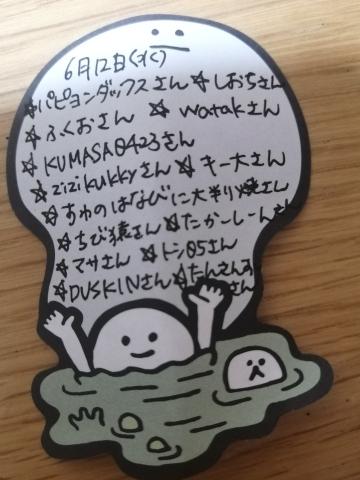 6月12日(水)
☆パピヨンダックスさん ☆しおちさん
☆ふくおさん ☆watakさん
☆KUMASA0423さん
☆zizikukkyさん ☆キー大さん
☆すゆのはなびに大判り焼さん
☆ちび猿さん ☆たかーしーんさん
☆マサさん ☆トシ05さん
☆DUSKINさん ☆たんさんす
さん